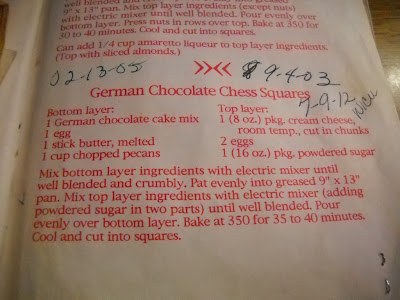 well blended and crumbly. Pat evenly into greased
9" x 13" pan. Mix top layer ingredients (except nuts)
with electric mixer until well blended. Pour evenly over
bottom layer. Press nuts in rows over top. Bake at 350 for
30 to 40 minutes. Cool and cut into squares.
Can add 1/4 cup amaretto liqueur to top layer ingredients.
(Top with sliced almonds.)
02-13-05
9-4-03
German Chocolate Chess Squares
9-9-12
Bottom layer:
1 German chocolate cake mix
1 egg
1 stick butter, melted
1 cup chopped pecans
Top layer:
1 (8 oz.) pkg. cream cheese,
room temp., cut in chunks
2 eggs
1 (16 oz.) pkg. powdered sugar
Mix bottom layer ingredients with electric mixer until
well blended and crumbly. Pat evenly into greased 9" x 13"
pan. Mix top layer ingredients with electric mixer (adding
powdered sugar in two parts) until well blended. Pour
evenly over bottom layer. Bake at 350 for 35 to 40 minutes.
Cool and cut into squares.